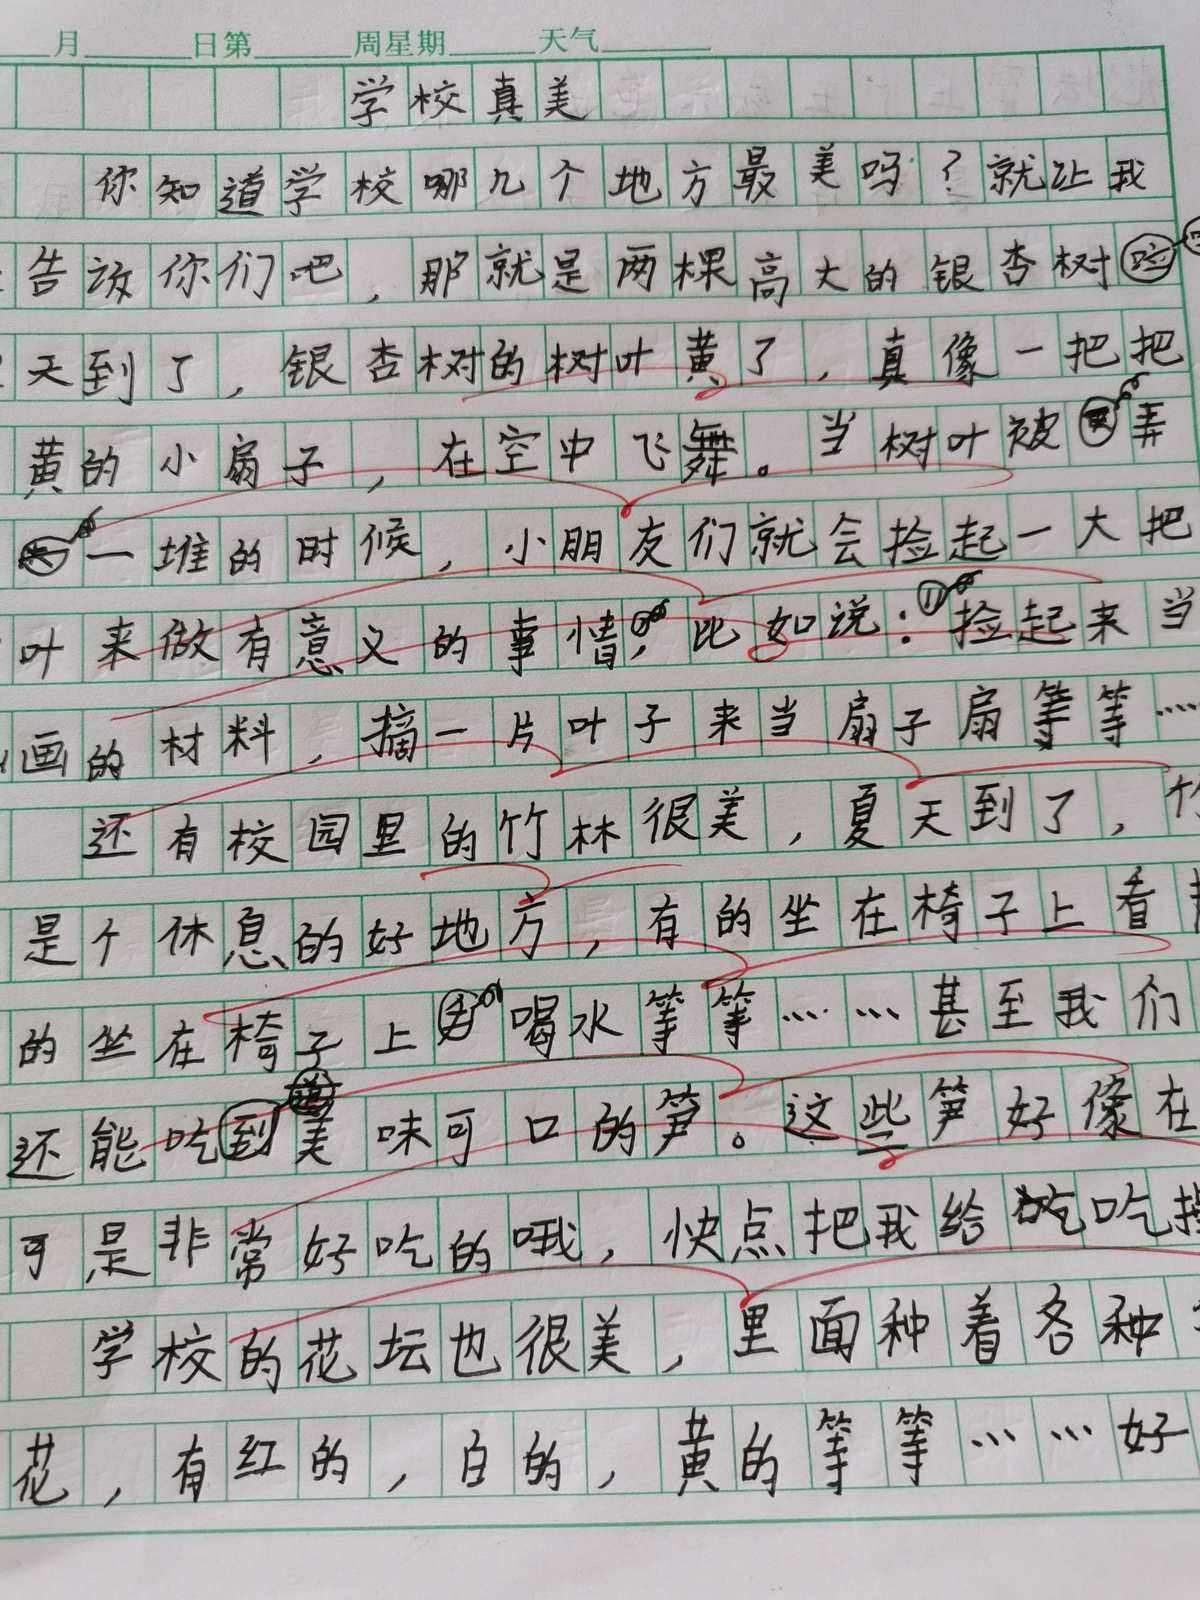 月 日第 周星期 天气
学校真美
你知道学校哪几个地方最美吗？就让我
告诉你们吧，那就是两棵高大的银杏树
天到了，银杏树的树叶黄了，真像一把把
黄的小扇子，在空中飞舞。当树叶被 弄
一堆的时候，小朋友们就会捡起一大把
叶来做有意义的事情，比如说：捡起来当
画的材料，摘一片叶子来当扇子扇等等……
还有校园里的竹林很美，夏天到了，竹
是个休息的好地方，有的坐在椅子上看
的坐在椅子上 喝水等等……甚至我们
还能吃到美味可口的笋。这些笋好像在
可是非常好吃的哦，快点把我给吃吃
学校的花坛也很美，里面种着各种
花，有红的，白的，黄的等等……好